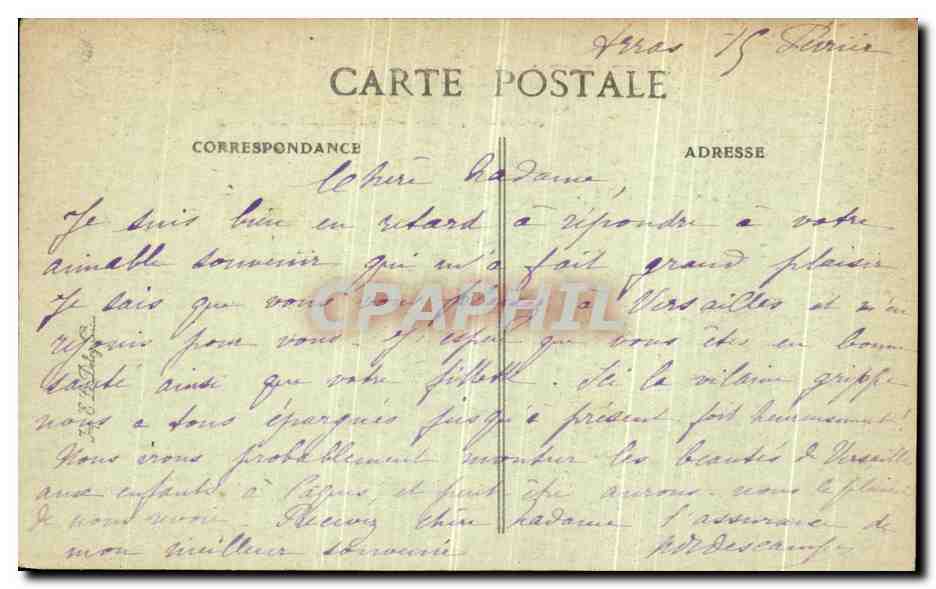 Arras 15 Février
CARTE POSTALE
CORRESPONDANCE
ADRESSE
Chère Madame,
Je suis bien en retard à répondre à votre
aimable souvenir qui m'a fait grand plaisir
Je sais que vous vous à Versailles et m'en
réjouis pour vous. J'espère que vous êtes en bonne
santé ainsi que votre fillette. Ici la vilaine grippe
nous a tous épargnés jusqu'à présent fort heureusement
Nous irons probablement montrer les beautés de Versailles
aux enfants à Pâques et peut-être aurons-nous le plaisir
de vous revoir. Recevez chère Madame l'assurance de
mon meilleur souvenir Descamps
CPAPHIL